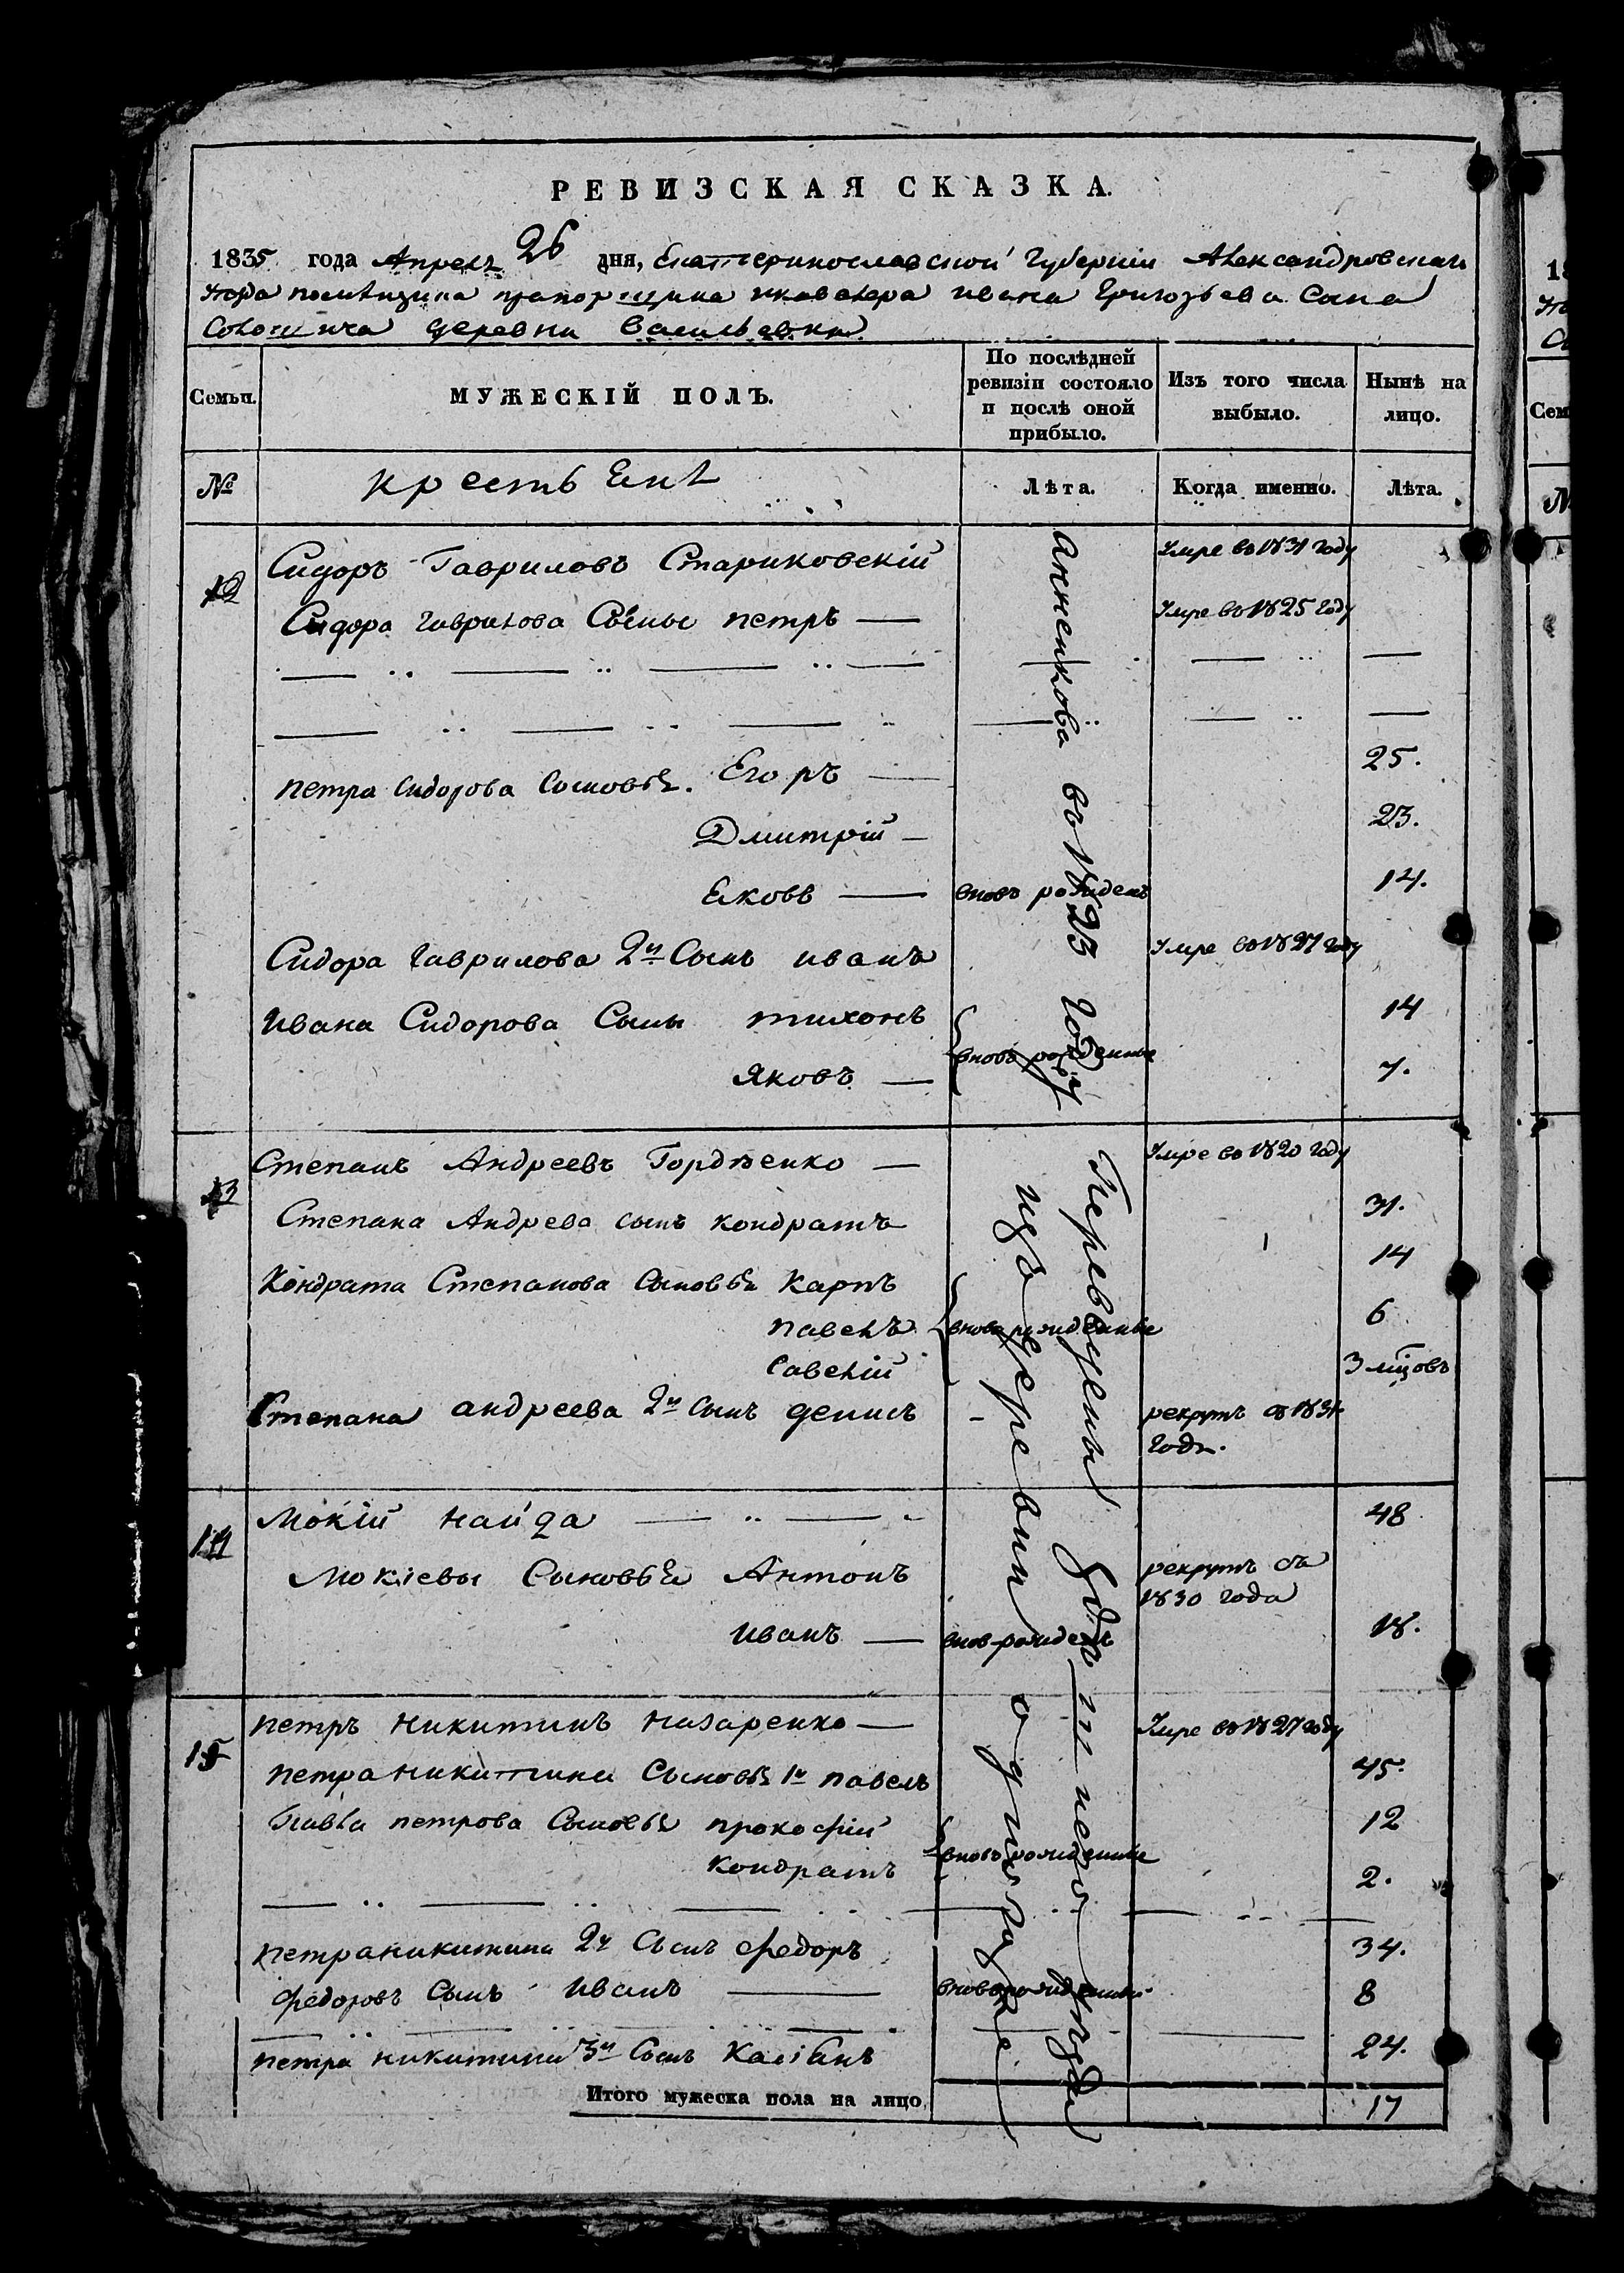 РЕВИЗСКАЯ СКАЗКА.
1835 года Апреля 26 дня, Екатеринославской Губерніи Александровскаго
уезда помещика прапорщика и кавалера Ивана Григорьева Сына
деревни Васильевки
Семьи.
МУЖЕСКІЙ ПОЛЪ.
По послѣдней ревизіи состояло и послѣ оной прибыло.
Изъ того числа выбыло.
Нынѣ на лицо.
№
крестьЕне
Лѣта.
Когда именно.
Лѣта.
12
Сидоръ Гавриловъ Стариковскій Умре во 1831 году
Сидора Гаврилова Сыны петръ — Умре во 1825 году
петра Сидорова Сыновья. Егоръ — 25.
Дмитрій — 23.
Екова — вновь рожденъ 14.
Сидора Гаврилова 2й Сынъ иванъ Умре во 1827 году
Ивана Сидорова Сыны тихонъ 14
вновь рожденные
Яковъ — 7.
13
Степанъ Андреевъ Гордѣенко — Умре во 1820 году
Степана Андрева сынъ кондратъ 31.
Кондрата Степанова Сыновья Карпъ 14
павелъ вновь рожденные 6
Савелій 3 мцовъ
Степана андреева 2й Сынъ денисъ рекрутъ 1831
году.
14
Мокій найда 48
Мокіевы Сыновья Антонъ рекрутъ съ
1830 года
Иванъ — внов рожденъ 18.
15
петръ никитинъ назаренко — Умре во 1827 году
петра никитина Сыновья 1й павелъ 45.
Павла петрова Сыновья прокофій 12
вновь рожденные
кондратъ 2.
петра никитина 2й Сынъ федоръ 34.
федоровъ Сынъ Иванъ вновь рожденный 8
петра никитина 3й Сынъ Касіянъ 24.
Итого мужеска пола на лицо 17
Переведены
изъ деревни
Анненкова во 1823 году